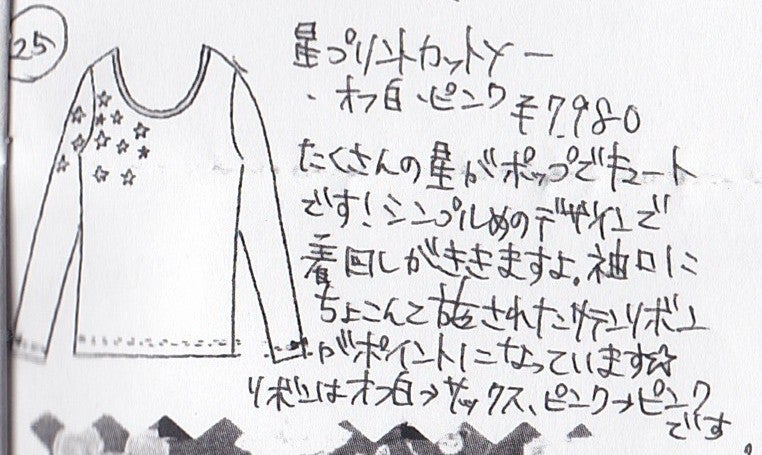 25
星プリントカットソー
・オフ白・ピンク ¥7,980
たくさんの星がポップでキュート
です!シンプルめのデザインで
着回しがききますよ。袖口に
ちょこんと施されたサテンリボン
がポイントになっています☆
リボンはオフ白→サックス、ピンク→ピンク
です